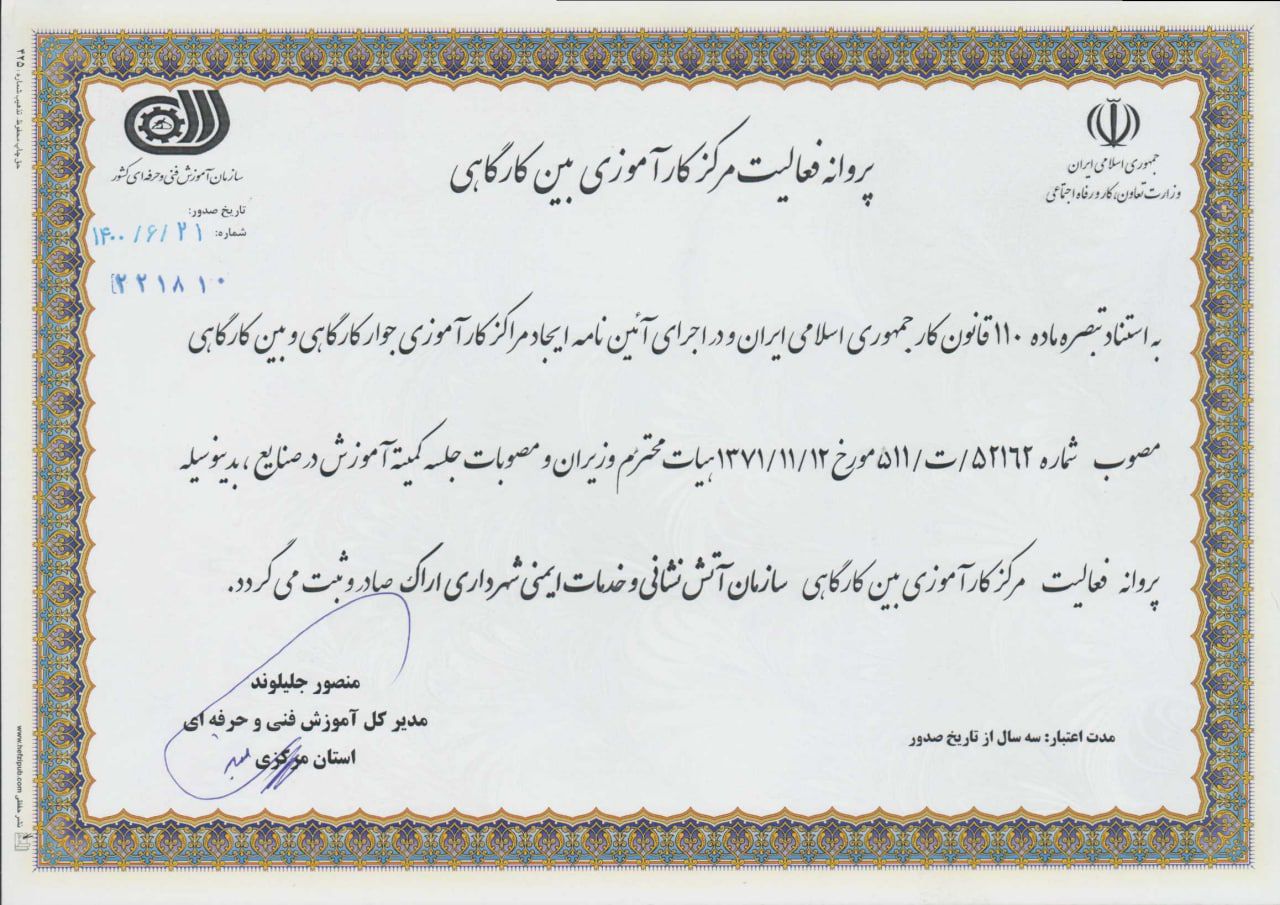 جمهوری اسلامی ایران
وزارت تعاون، کار و رفاه اجتماعی
سازمان آموزش فنی و حرفه ای کشور
تاریخ صدور:
۱۴۰۰/۶/۲۱
شماره:
۲۲۱۸۱۰
پروانه فعالیت مرکز کارآموزی بین کارگاهی
به استناد تبصره ماده ۱۱۰ قانون کار جمهوری اسلامی ایران و در اجرای آئین نامه ایجاد مراکز کارآموزی جوار کارگاهی و بین کارگاهی
مصوب شماره ۵۲۱۶۲/ت/۵۱۱ مورخ ۱۳۷۱/۱۱/۱۲ هیات محترم وزیران و مصوبات جلسه کمیته آموزش در صنایع، بدینوسیله
پروانه فعالیت مرکز کارآموزی بین کارگاهی سازمان آتش نشانی و خدمات ایمنی شهرداری اراک صادر و ثبت می گردد.
منصور جلیلوند
مدیر کل آموزش فنی و حرفه ای
استان مرکزی
مدت اعتبار: سه سال از تاریخ صدور
حق چاپ محفوظ. تذهیب شماره: ۴۲۵
نشر حفظی www.hefzipub.com